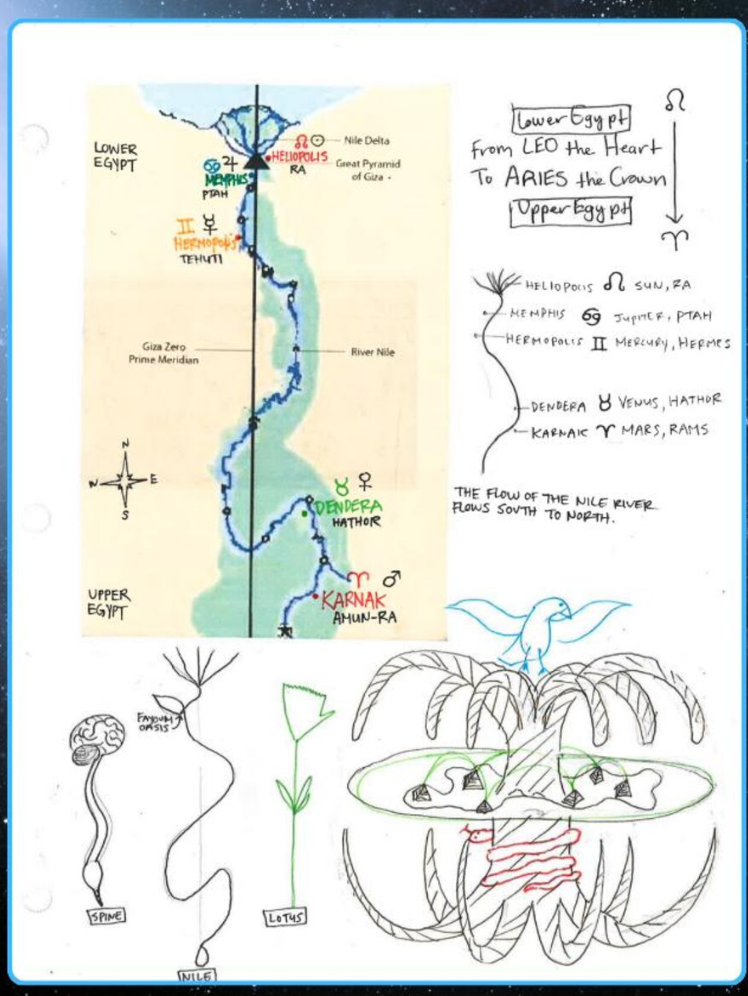 LOWER
EGYPT
♌ ☉
Nile Delta
HELIOPOLIS
RA
Great Pyramid
of Giza
♋ ♃
MEMPHIS
PTAH
♊ ☿
HERMOPOLIS
TEHUTI
Giza Zero
Prime Meridian
River Nile
N
W E
S
♉ ♀
DENDERA
HATHOR
♈ ♂
KARNAK
AMUN-RA
UPPER
EGYPT
Lower Egypt
From LEO the Heart
To ARIES the Crown
Upper Egypt
♌
♈
HELIOPOLIS ♌ SUN, RA
MEMPHIS ♋ JUPITER, PTAH
HERMOPOLIS ♊ MERCURY, HERMES
DENDERA ♉ VENUS, HATHOR
KARNAK ♈ MARS, RAMS
THE FLOW OF THE NILE RIVER
FLOWS SOUTH TO NORTH.
FAYOUM
OASIS
SPINE
NILE
LOTUS